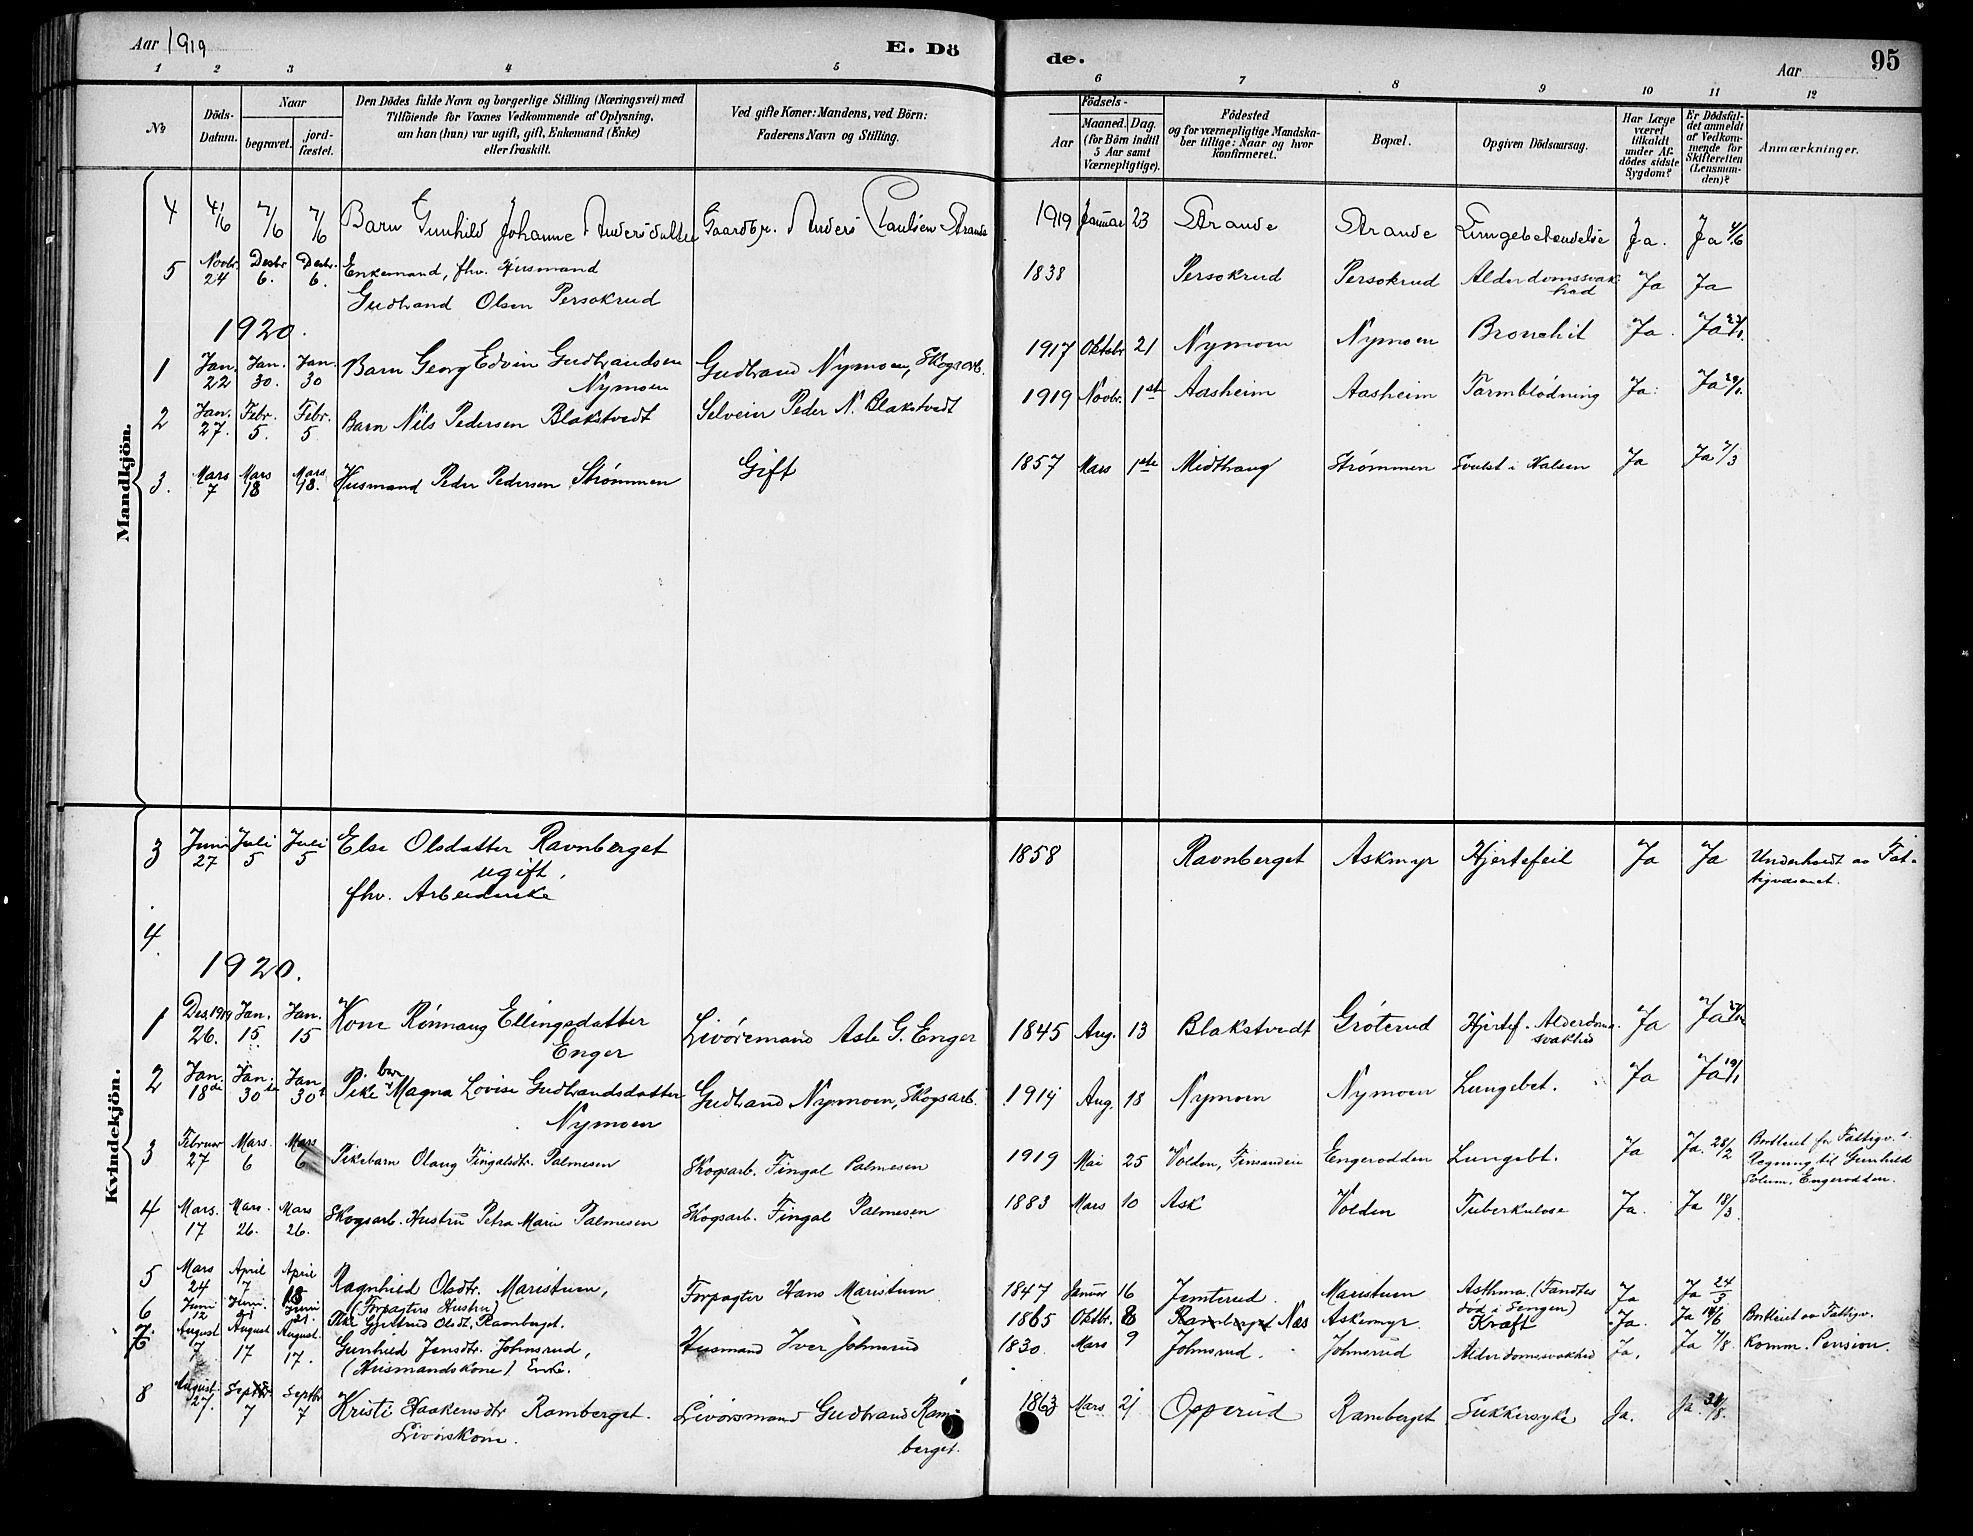 Aar 1919
E. Dö
de.
Aar
95
1 2 3 4 5 6 7 8 9 10 11 12
№
Döds-Datum.
Naar
begravet.
jord-fæstet.
Den Dödes fulde Navn og borgerlige Stilling (Næringsvei) med
Tilföiende for Voxnes Vedkommende af Oplysning,
om han (hun) var ugift, gift, Enkemand (Enke)
eller fraskilt.
Ved gifte Koner: Mandens, ved Börn:
Faderens Navn og Stilling.
Födsels-
Aar
Maaned. Dag.
(for Börn indtil
5 Aar samt
Værnepligtige).
Födested
og for værnepligtige Mandska-
ber tillige: Naar og hvor
konfirmeret.
Bopæl.
Opgiven Dödsaarsag.
Har Læge
været
tilkaldt
under Af-
dödes sidste
Sygdom?
Er Dödsfal-
det anmeldt
af Vedkom-
mende for
Skifteretten
(Lensman-
den)?
Anmærkninger.
Mandkjön.
4 4/6 7/6 7/6 Barn Gunhild Johanne Andersdatter Gaardbr. Anders Paulsen Strande 1919 Januar 23 Strande Strande Lungebetændelse Ja. Ja 4/6
5 Novbr. 24 Desbr 6. Desbr. 6. Enkemand, fhv. Husmand
Gudbrand Olsen Persokrud 1838 Persokrud Persokrud Alderdomssvak-
hed Ja Ja
1920.
1 Jan. 22 Jan. 30. Jan. 30 Barn Georg Edvin Gudbrandsen
Nymoen Gudbrand Nymoen, Skogsarb. 1917 Oktobr 21 Nymoen Nymoen Bronchit Ja. Ja
2 Jan. 27. Febr. 5. Febr. 5 Barn Nils Pedersen Blakstvedt Selveier Peder N. Blakstvedt 1919 Novbr. 1ste Aasheim Aasheim Tarmblødning Ja. Ja
3. Mars 7 Mars 18 Mars 18. Husmand Peder Pedersen Strømmen Gift 1857 Mars 1ste Midthaug Strømmen Svulst i Halsen Ja Ja 7/3
Kvindekjön.
3 Juni 27 Juli 5 Juli 5 Else Olsdatter Ravnberget
ugift,
fhv. Arbeiderske 1858 Ravnberget Askmyr Hjertefeil Ja Ja Underholdt av Fat-
tigvæsenet.
4.
1920.
1 Des. 1919 26. Jan. 15 Jan. 15 Kone Rönnaug Ellingsdatter
Enger Livöremand Asle G. Enger 1845 Aug. 13 Blakstvedt Gröterud Hjertef. Alderdoms-
svakhed Ja Ja
2 Jan. 18de Jan. 30te Jan. 30t Pikebarn Magna Lovise Gudbrandsdatter
Nymoen Gudbrand Nymoen, Skogsarb. 1914 Aug. 18 Nymoen Nymoen Lungebet. Ja Ja 19/1
3 Februar 27 Mars. 6 Mars 6 Pikebarn Olaug Fingalsdtr. Palmesen Skogsarb. Fingal Palmesen 1919 Mai 25 Volden, Finsandeie Engerodden Lungebt. Ja Ja. 28/2 Bortleiet for Fattigv.s
Regning til Gunhild
Solum, Engerodden.
4 Mars. 17 Mars. 26. Mars 26. Skogsarb. Hustru Petra Marie Palmesen Skogsarb. Fingal Palmesen 1883 Mars 10 Ask Volden Tuberkulose Ja. Ja 18/3
5 Mars 24 April 7 April Ragnhild Olsdtr. Maristuen,
(Forpagters Hustru) Forpagter Hans Maristuen 1847 Januar 16 Jemterud. Maristuen Asthma. (Fandtes
död i Sengen) Ja Ja 24/3
6 Juni 12 Juni. 21 Juni 21. Pike Gjertrud Olsdt. Ramberget. 1865 Oktbr. 8 Ramberget Næs Askemyr. Kræft Ja. Ja 14/6 Bortleiet av Fattigv.
7. August August 17 August. 17. Gunhild Jensdtr. Johnsrud,
(Husmandskone) Enke. Husmand Iver Johnsrud 1830. Mars 9 Johnsrud. Johnsrud Alderdomssvakhed Ja. Ja 7/8 Komm. Pension.
8 August. 27. Septbr. 7 Septbr 7 Kristi Haakensdtr Ramberget.
Livörskone. Livörsmand Gudbrand Ram-
berget. 1863 Mars 21 Opperud Ramberget Sukkersyke Ja. Ja. 31/8.